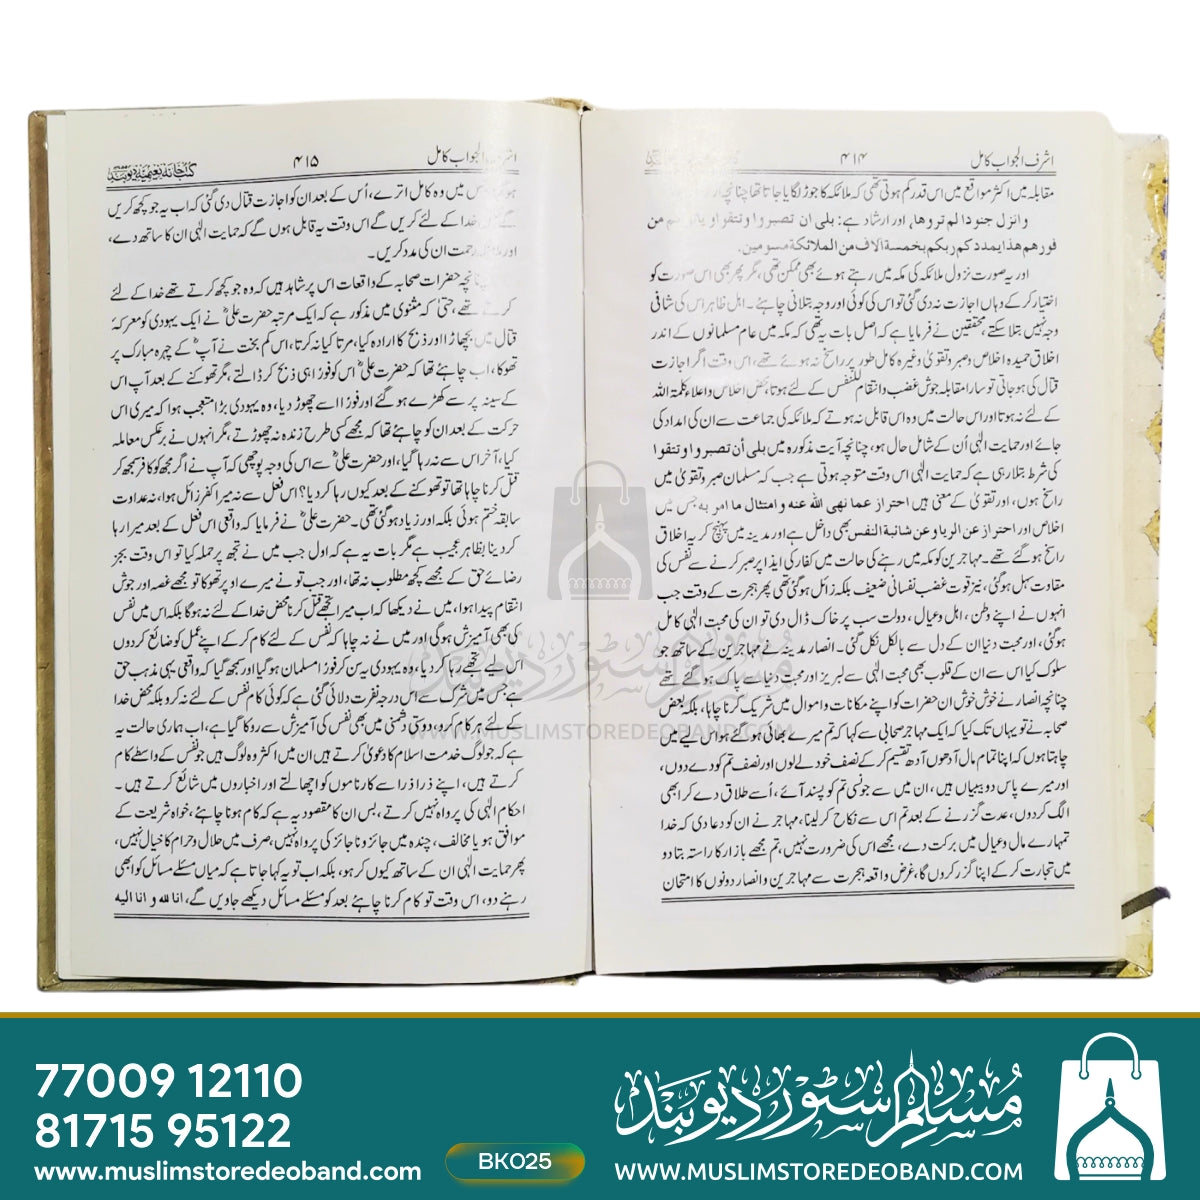 اشرف الجواب کامل
۴۱۴
مقابلہ میں اکثر مواقع میں اس قدر کم ہوتی تھی کہ ملائکہ کا جوڑ لگایا جاتا تھا چنانچہ ارشاد
وانزل جنودا لم تروها، اور ارشاد ہے: بلى ان تصبروا وتتقوا ويأتوكم من
فورهم هذا يمددكم ربكم بخمسة الاف من الملائكة مسومين.
اور یہ صورت نزول ملائکہ کی مکہ میں رہتے ہوئے بھی ممکن تھی، مگر پھر بھی اس صورت کو
اختیار کر کے وہاں اجازت نہ دی گئی تو اس کی کوئی اور وجہ بتلانی چاہئے۔ اہل ظاہر اس کی شافی
وجہ نہیں بتلا سکتے، محققین نے فرمایا ہے کہ اصل بات یہ تھی کہ مکہ میں عام مسلمانوں کے اندر
اخلاق حمیدہ اخلاص وصبر وتقویٰ وغیرہ کامل طور پر راسخ نہ ہوئے تھے، اس وقت اگر اجازت
قتال کی ہو جاتی تو سارا مقابلہ جوش غضب وانتقام للنفس کے لئے ہوتا، محض اخلاص واعلاء کلمۃ اللہ
کے لئے نہ ہوتا اور اس حالت میں وہ اس قابل نہ ہوتے کہ ملائکہ کی جماعت سے ان کی امداد کی
جائے اور حمایت الٰہی اُن کے شامل حال ہو، چنانچہ آیت مذکورہ میں بلى أن تصبروا وتتقوا
کی شرط بتلا رہی ہے کہ حمایت الٰہی اس وقت متوجہ ہوتی ہے جب کہ مسلمان صبر وتقویٰ میں
راسخ ہوں، اور تقویٰ کے معنی ہیں احتراز عما نهى الله عنه و امتثال ما امر به جس میں
اخلاص اور احتراز عن الريا وعن شائبة النفس بھی داخل ہے اور مدینہ میں پہنچ کر یہ اخلاق
راسخ ہو گئے تھے۔ مہاجرین کو مکہ میں رہنے کی حالت میں کفار کی ایذا پر صبر کرنے سے نفس کی
مقاومت سہل ہو گئی، نیز قوت غضب نفسانی ضعیف بلکہ زائل ہو گئی تھی پھر ہجرت کے وقت جب
انہوں نے اپنے وطن، اہل وعیال، دولت سب پر خاک ڈال دی تو ان کی محبت الٰہی کامل
ہو گئی، اور محبت دنیا ان کے دل سے بالکل نکل گئی۔ انصار مدینہ نے مہاجرین کے ساتھ جو
سلوک کیا اس سے ان کے قلوب بھی محبت الٰہی سے لبریز اور محبت دنیا سے پاک ہو گئے تھے
چنانچہ انصار نے خوش خوش ان حضرات کو اپنے مکانات واموال میں شریک کرنا چاہا، بلکہ بعض
صحابہ نے تو یہاں تک کیا کہ ایک مہاجر صحابی سے کہا کہ تم میرے بھائی ہو گئے ہو اس لئے میں
چاہتا ہوں کہ اپنا تمام مال آدھوں آدھ تقسیم کر کے نصف خود لے لوں اور نصف تم کو دے دوں،
اور میرے پاس دو بیبیاں ہیں، ان میں سے جونسی تم کو پسند آئے، اُسے طلاق دے کر ابھی
الگ کردوں، عدت گزرنے کے بعد تم اس سے نکاح کر لینا، مہاجر نے ان کو دعا دی کہ خدا
تمہارے مال وعیال میں برکت دے، مجھے اس کی ضرورت نہیں، تم مجھے بازار کا راستہ بتا دو
میں تجارت کر کے اپنا گزر کروں گا، غرض واقعہ ہجرت سے مہاجرین وانصار دونوں کا امتحان
اشرف الجواب کامل
۴۱۵
کتب خانہ نعیمیہ دیوبند
میں وہ کامل اترے، اُس کے بعد ان کو اجازت قتال دی گئی کہ اب یہ جو کچھ کریں
خدا کے لئے کریں گے اس وقت یہ قابل ہوں گے کہ حمایت الٰہی ان کا ساتھ دے،
اور رحمت ان کی مدد کریں۔
حضرات صحابہ کے واقعات اس پر شاہد ہیں کہ وہ جو کچھ کرتے تھے خدا کے لئے
کرتے تھے، حتیٰ کہ مثنوی میں مذکور ہے کہ ایک مرتبہ حضرت علیؓ نے ایک یہودی کو معرکۂ
قتال میں پچھاڑا اور ذبح کا ارادہ کیا، مرتا کیا نہ کرتا، اس کم بخت نے آپؓ کے چہرہ مبارک پر
تھوکا، اب چاہئے تھا کہ حضرت علیؓ اس کو فوراً ہی ذبح کر ڈالتے، مگر تھوکنے کے بعد آپ اس
کے سینہ پر سے کھڑے ہو گئے اور فوراً اسے چھوڑ دیا، وہ یہودی بڑا متعجب ہوا کہ میری اس
حرکت کے بعد ان کو چاہئے تھا کہ مجھے کسی طرح زندہ نہ چھوڑتے، مگر انہوں نے برعکس معاملہ
کیا، آخر اس سے نہ رہا گیا، اور حضرت علیؓ سے اس کی وجہ پوچھی کہ آپ نے اگر مجھ کو کافر سمجھ کر
قتل کرنا چاہا تھا تو تھوکنے کے بعد کیوں رہا کر دیا؟ اس فعل سے نہ میرا کفر زائل ہوا، نہ عداوت
سابقہ ختم ہوئی بلکہ اور زیادہ ہو گئی تھی۔ حضرت علیؓ نے فرمایا کہ واقعی اس فعل کے بعد میرا رہا
کر دینا بظاہر عجیب ہے مگر بات یہ ہے کہ اول جب میں نے تجھ پر حملہ کیا تو اس وقت بجز
رضائے حق کے مجھے کچھ مطلوب نہ تھا، اور جب تو نے میرے اوپر تھوکا تو مجھے غصہ اور جوش
انتقام پیدا ہوا، میں نے دیکھا کہ اب میرا تجھے قتل کرنا محض خدا کے لئے نہ ہوگا بلکہ اس میں نفس
کی بھی آمیزش ہوگی اور میں نے نہ چاہا کہ نفس کے لئے کام کر کے اپنے عمل کو ضائع کردوں
اس لئے تجھے رہا کر دیا، وہ یہودی یہ سن کر فوراً مسلمان ہو گیا اور سمجھ گیا کہ واقعی یہی مذہب حق
ہے جس میں شرک سے اس درجہ نفرت دلائی گئی ہے کہ کوئی کام نفس کے لئے نہ کرو بلکہ محض خدا
کے لئے ہر کام کرو، دوستی دشمنی میں بھی نفس کی آمیزش سے روکا گیا ہے، اب ہماری حالت یہ
ہے کہ جو لوگ خدمت اسلام کا دعویٰ کرتے ہیں ان میں اکثر وہ لوگ ہیں جو نفس کے واسطے کام
کرتے ہیں، اپنے ذرا ذرا سے کارناموں کو اچھالتے اور اخباروں میں شائع کرتے ہیں۔
احکام الٰہی کی پرواہ نہیں کرتے، بس ان کا مقصود یہ ہے کہ کام ہونا چاہئے، خواہ شریعت کے
موافق ہو یا مخالف، چندہ میں جائز و ناجائز کی پرواہ نہیں، صرف میں حلال وحرام کا خیال نہیں،
پھر حمایت الٰہی ان کے ساتھ کیوں کر ہو، بلکہ اب تو یہ کہا جاتا ہے کہ میاں مسئلے مسائل کو ابھی
رہنے دو، اس وقت تو کام کرنا چاہئے بعد کو مسئلے مسائل دیکھے جاویں گے، انا لله و انا اليه
مسلم سٹور دیوبند
WWW.MUSLIMSTOREDEOBAND.COM
77009 12110
81715 95122
www.muslimstoredeoband.com
BK025
مسلم سٹور دیوبند
WWW.MUSLIMSTOREDEOBAND.COM